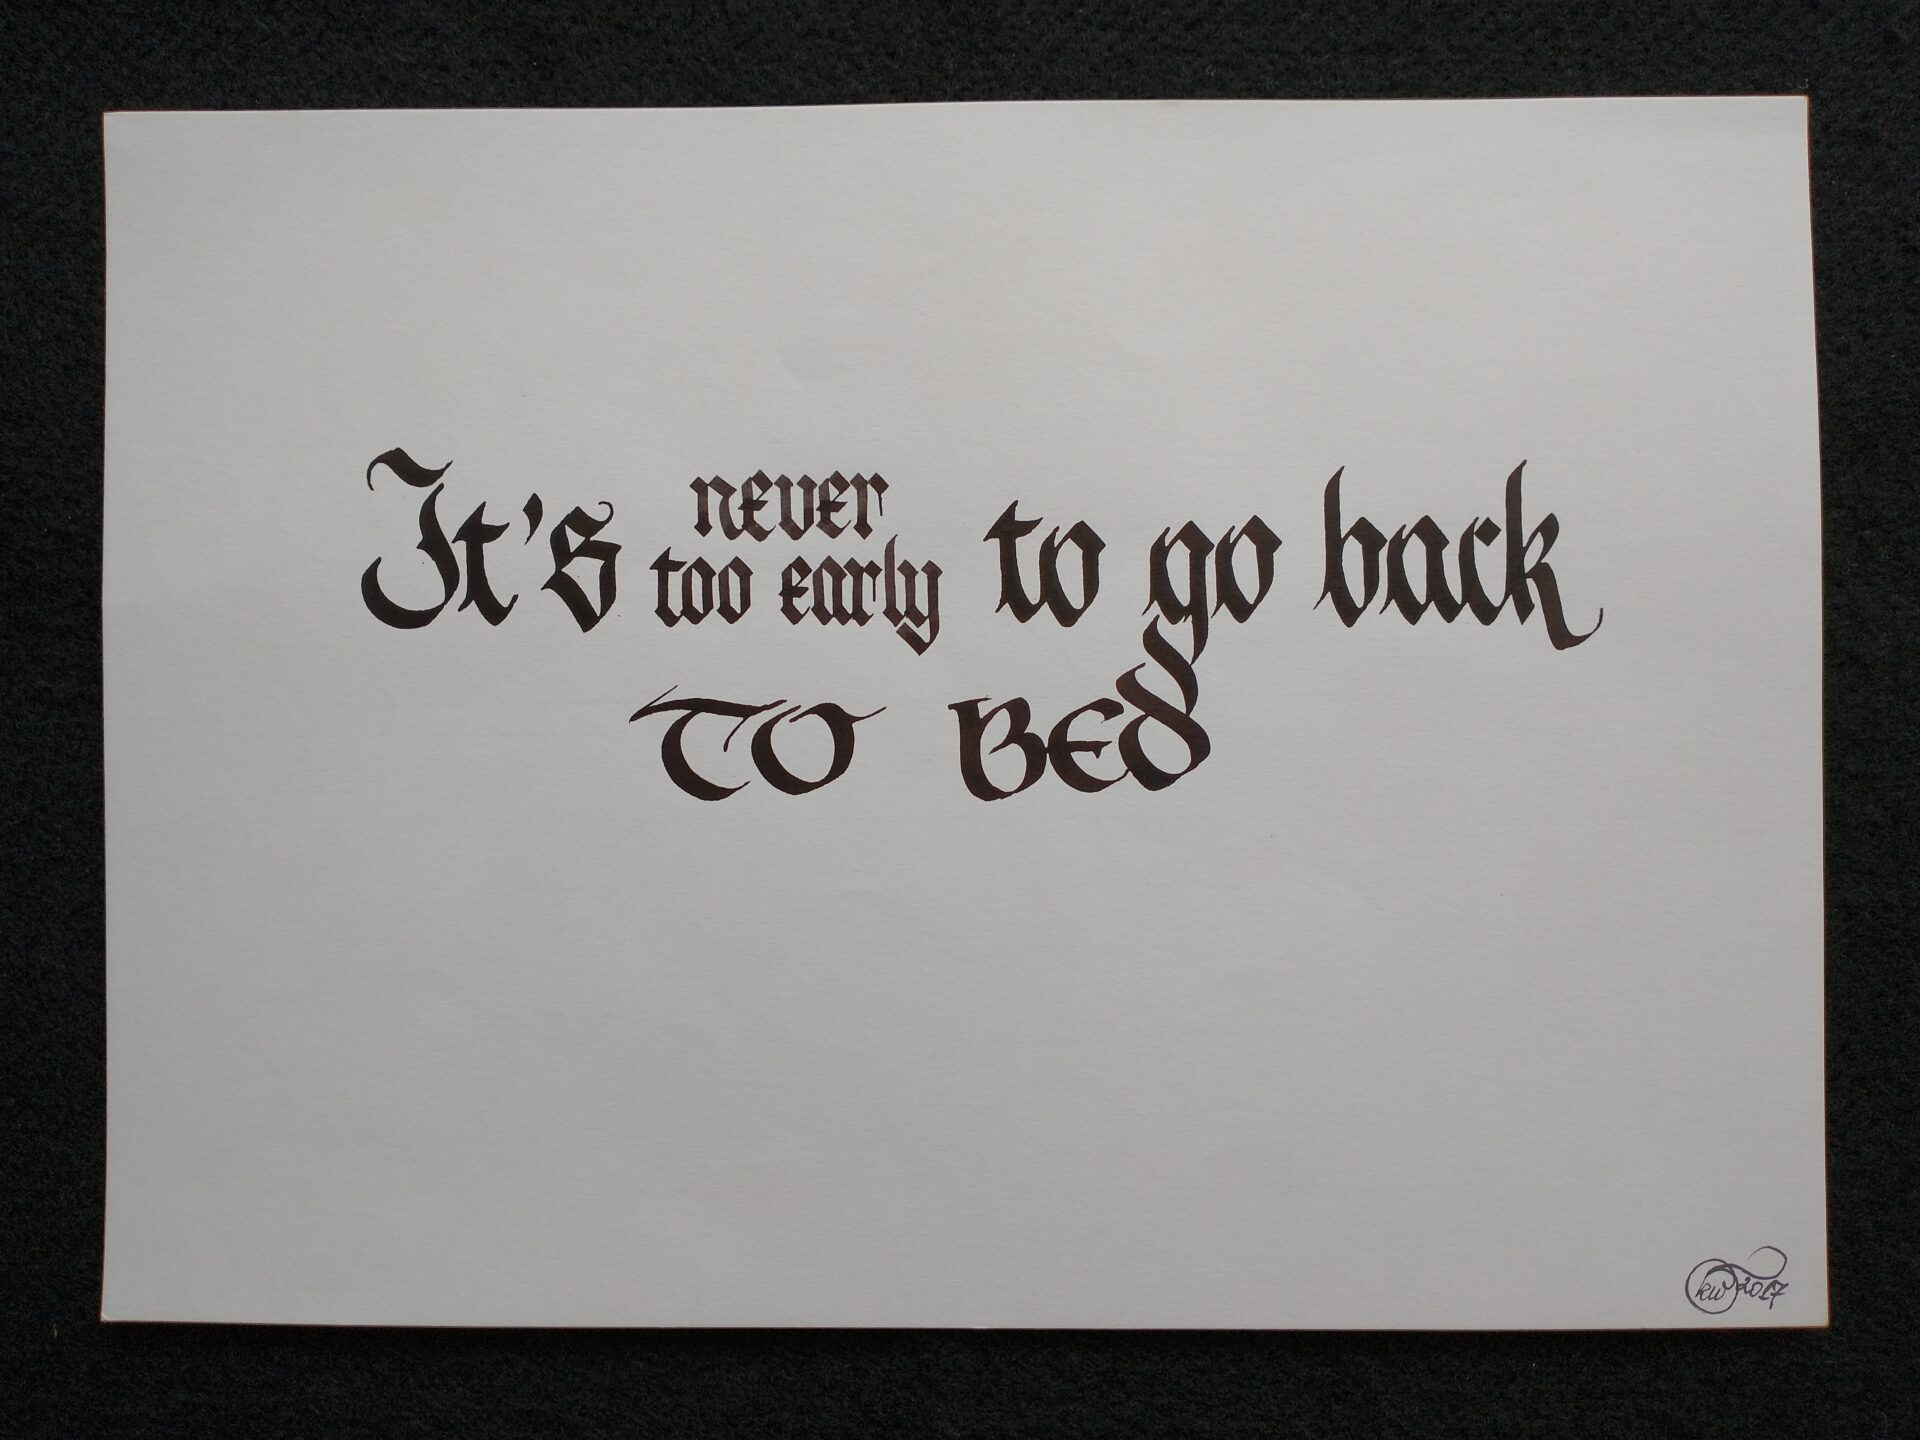 It's never too early to go back
TO BED
kw 2017